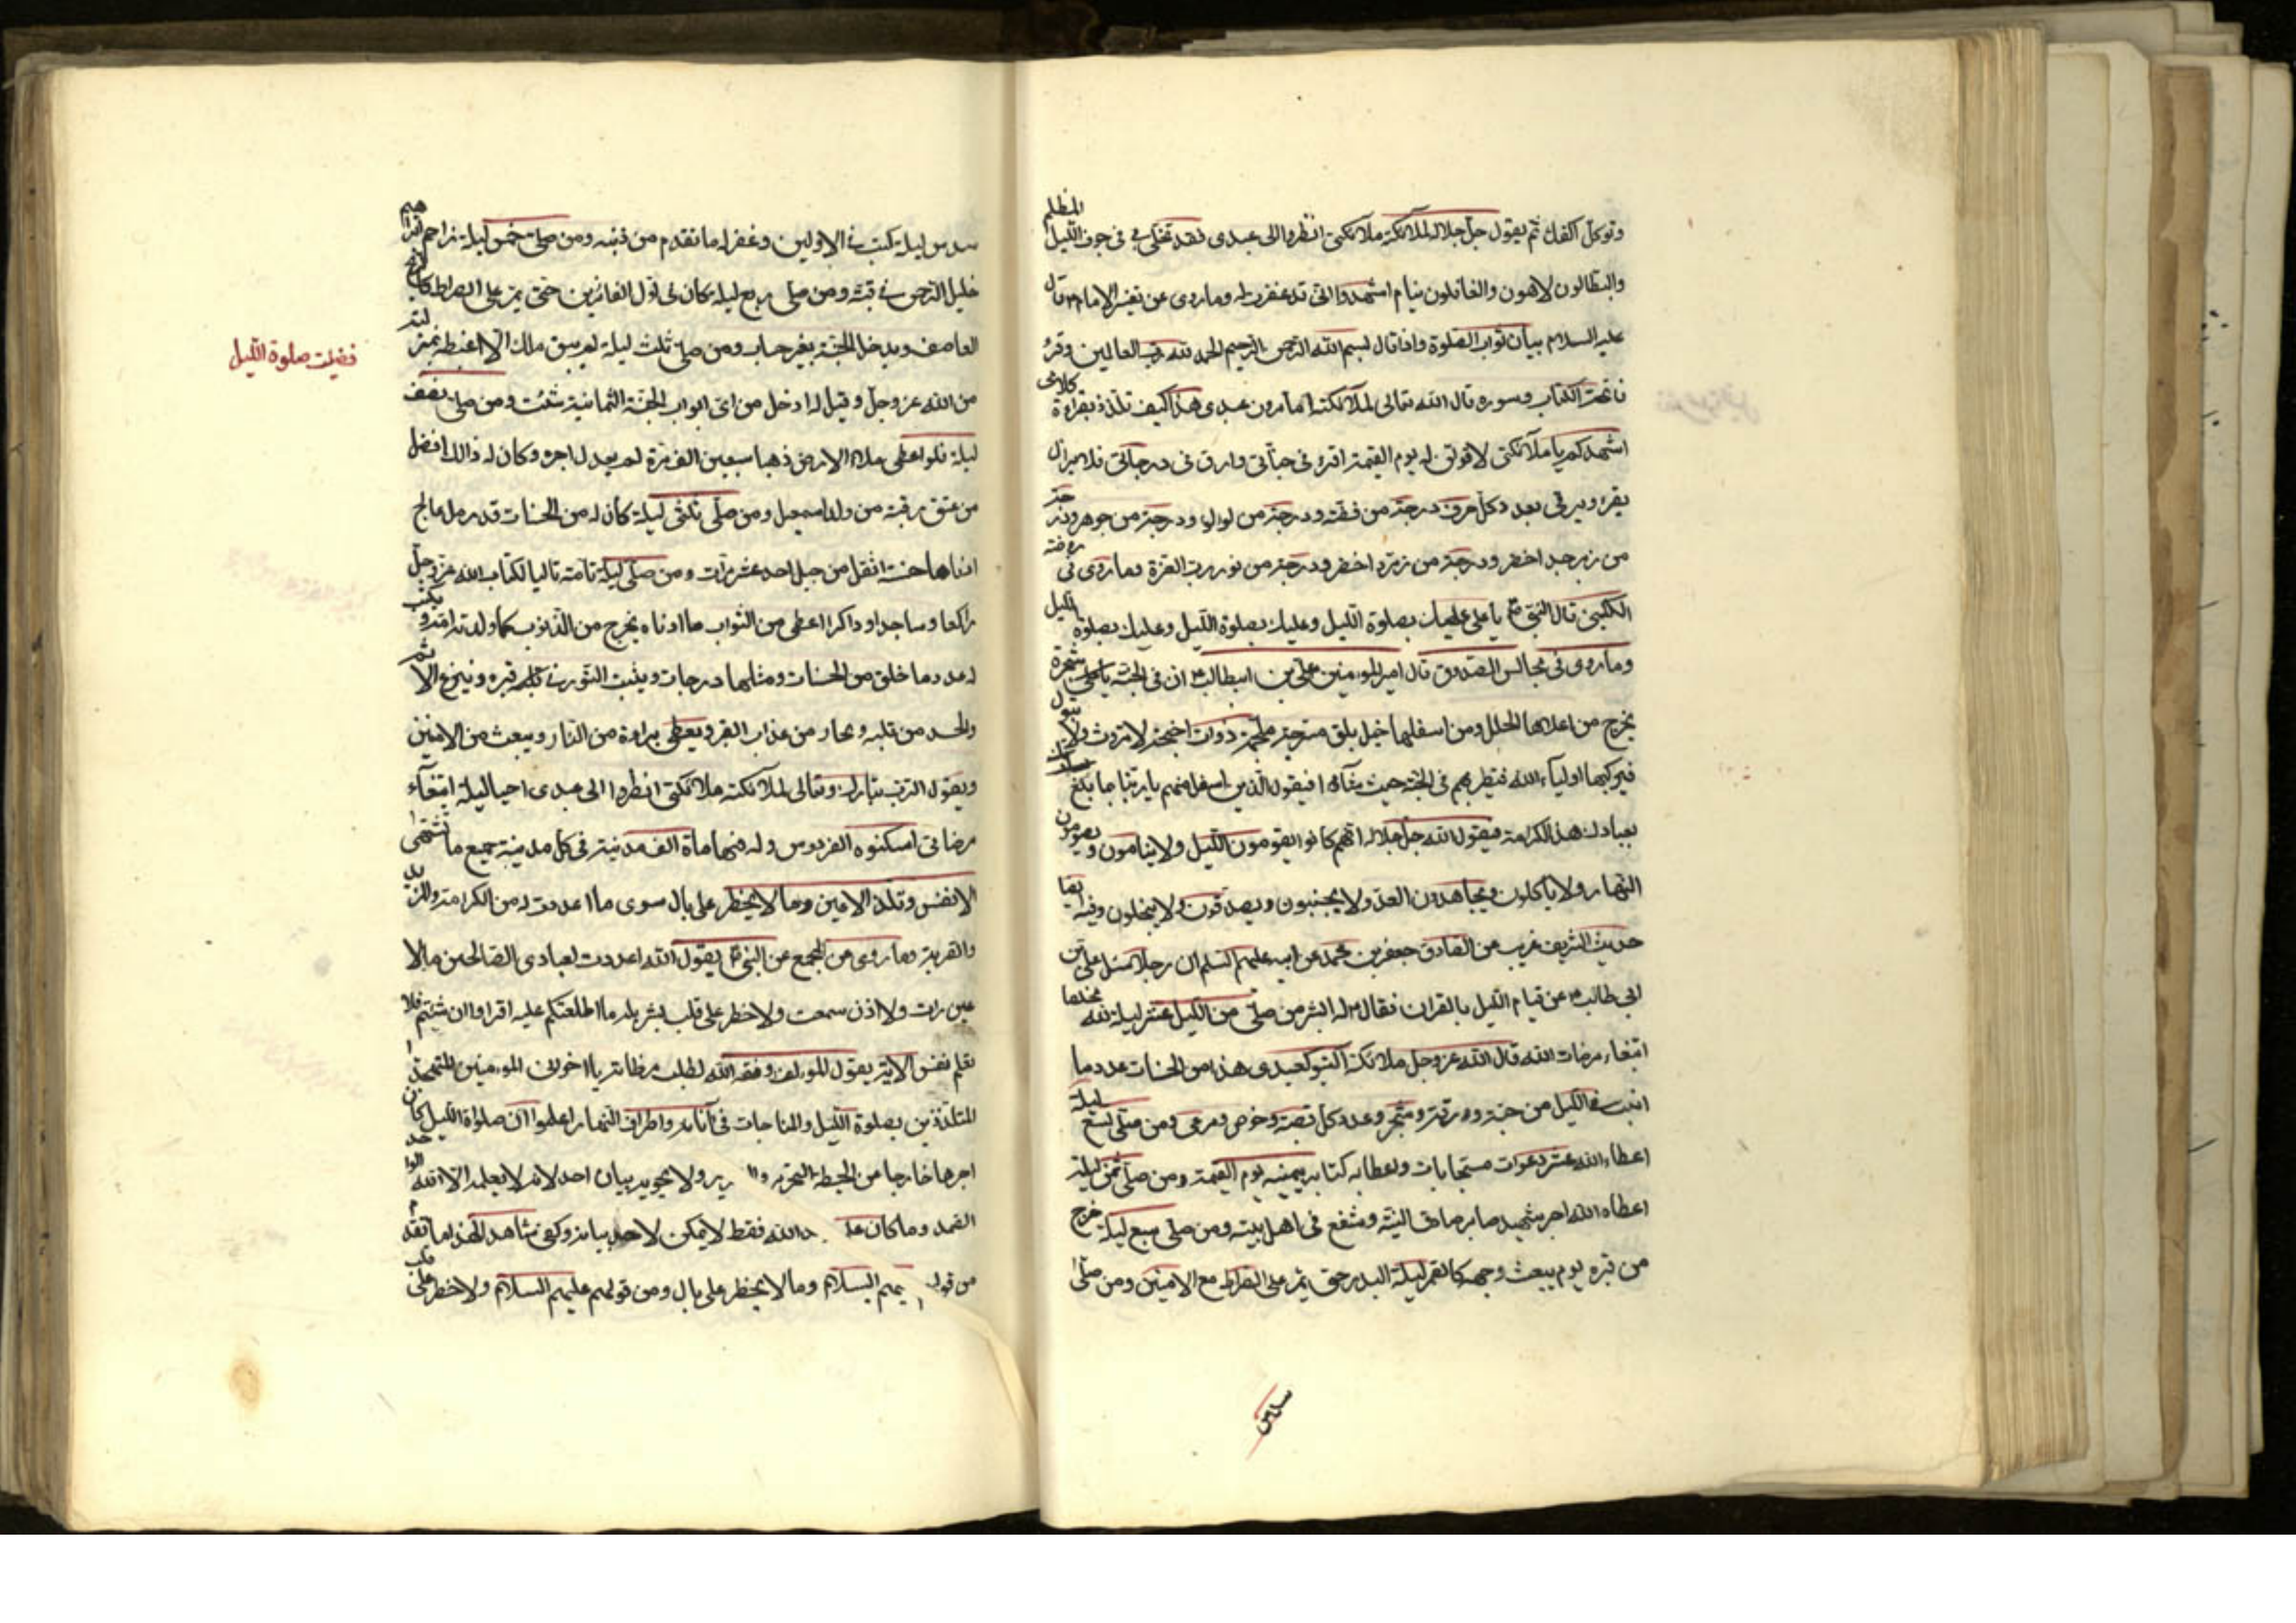 وتوكل الفك ثم يقول جل جلاله لملائكته ملائكتى انظروا الى عبدى فقد تخلى بى فى جوف الليل المظلم
والبطالون لاهون والغافلون نيام اشهدوا انى قد غفرت له وما روى عن تفسير الامام قال
عليه السلام بيان ثواب الصلوة واذا قال بسم الله الرحمن الرحيم الحمد لله رب العالمين وقرء
فاتحة الكتاب وسورة قال الله تعالى لملائكته اما ترون عبدى هذا كيف تلذذ بقراءة كلامى
اشهدكم يا ملائكتى لاقولن له يوم القيمة اقرء فى جناتى وارق فى درجاتى فلا يزال
يقرء ويرقى بعدد كل حرف درجة من فضة ودرجة من لولو ودرجة من جوهر ودرجة
من زبرجد اخضر ودرجة من زمرد اخضر ودرجة من نور رب العزة وما روى فى روضة
الكلينى قال النبى يا على عليك بصلوة الليل وعليك بصلوة الليل وعليك بصلوة الليل
وما روى فى مجالس الصدوق قال امير المومنين على بن ابيطالب ان فى الجنة شجرة
يخرج من اعلاها الحلل ومن اسفلها خيل بلق مسرجة ملجمة ذوات اجنحة لا تروث ولا تبول
فيركبها اولياء الله فتطير بهم فى الجنة حيث شاؤا فيقول الذين اسفل منهم يا ربنا ما بلغ
بعبادك هذه الكرامة فيقول الله جل جلاله انهم كانوا يقومون الليل ولا ينامون ويصومون
النهار ولا ياكلون ويجاهدون العدو ولا يجبنون ويصدقون ولا يبخلون وفيه ايضا
حديث الشريف غريب عن الصادق جعفر بن محمد عن ابيه عليهم السلم ان رجلا سئل على بن
ابى طالب عن قيام الليل بالقران فقال له ابشر من صلى من الليل عشر ليلة لله مخلصا
ابتغاء مرضات الله قال الله عز وجل ملائكته اكتبو لعبدى هذا من الحسنات عدد ما
انبت فى الليل من حبة وورقة وشجر وعدد كل قصبة وخوص ومرعى ومن صلى تسع ليلة
اعطاه الله عشر دعوات مستجابات واعطاه كتابه بيمينه يوم القيمة ومن صلى ثمن ليلة
اعطاه الله اجر شهيد صابر صادق النية وشفع فى اهل بيته ومن صلى سبع ليلة خرج
من قبره يوم يبعث وجهه كالقمر ليلة البدر حتى يمر على الصراط مع الامنين ومن صلى
سدس
سدس ليلة كتب فى الاوابين وغفر له ما تقدم من ذنبه ومن صلى خمس ليلة زاحم ابراهيم
خليل الرحمن فى قبته ومن صلى ربع ليلة كان فى اول الفائزين حتى يمر على الصراط كالريح
العاصف ويدخل الجنة بغير حساب ومن صلى ثلث ليلة لم يبق ملك الا اغبطه بمنزلته
فضيلت صلوة الليل
من الله عز وجل وقيل له ادخل من اى ابواب الجنة الثمانية شئت ومن صلى نصف
ليلة فلو اعطى ملاء الارض ذهبا سبعين الف مرة لم يعدل اجره وكان له ذالك افضل
من عتق رقبة من ولد اسمعيل ومن صلى ثلثى ليلة كان له من الحسنات قدر رمل عالج
ادناها حسنة اثقل من جبل احد عشر مرات ومن صلى ليلة تامة تاليا لكتاب الله عز وجل
راكعا وساجدا وذاكرا اعطى من الثواب ما ادناه يخرج من الذنوب كما ولدته امه ويكتب
له عدد ما خلق من الحسنات ومثلها درجات ويثبت النور فى قبره وينزع الاثم
والحسد من قلبه ويجار من عذاب القبر ويعطى براءة من النار ويبعث من الامنين
ويقول الرب تبارك وتعالى لملائكته ملائكتى انظروا الى عبدى احيا ليلة ابتغاء
مرضاتى اسكنوه الفردوس وله فيها ماة الف مدينة فى كل مدينة جميع ما تشتهى
الانفس وتلذ الاعين وما لا يخطر على بال سوى ما اعددت له من الكرامة والمزيد
والقربة وما روى من المجمع عن النبى يقول الله اعددت لعبادى الصالحين ما لا
عين رات ولا اذن سمعت ولا خطر على قلب بشر بله ما اطلعتكم عليه اقراوا ان شئتم فلا
تعلم نفس الاية يقول المولف وفقه الله لطلب مرضاته يا اخوان المومنين المتهجدين
المتلذذين بصلوة الليل والمناجات فى آنائه واطراف النهار اعلموا ان صلواة الليل كان
اجرها خارجا من الحيطة ولا يحويه بيان احد لانه لا يعلمه الا الله الواحد
الصمد وما كان الله فقط لا يمكن لاحد بيانه وكفى شاهد لهذا ما تقدم
من قولـ السلام وما لا يخطر على بال ومن قولهم عليهم السلام ولا خطر على قلب